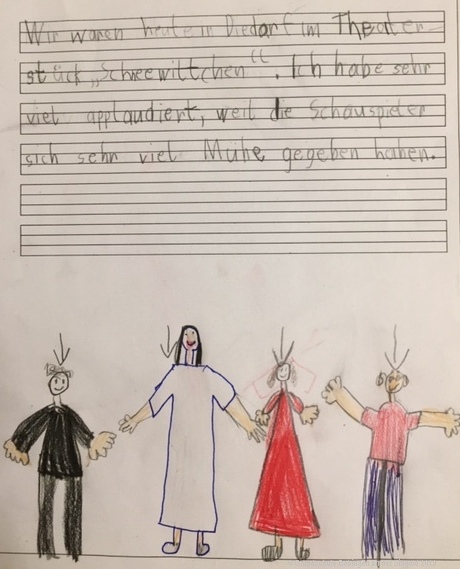 Wir waren heute in Diedorf im Theater-
stück „Schneewittchen“. Ich habe sehr
viel applaudiert, weil die Schauspieler
sich sehr viel Mühe gegeben haben.